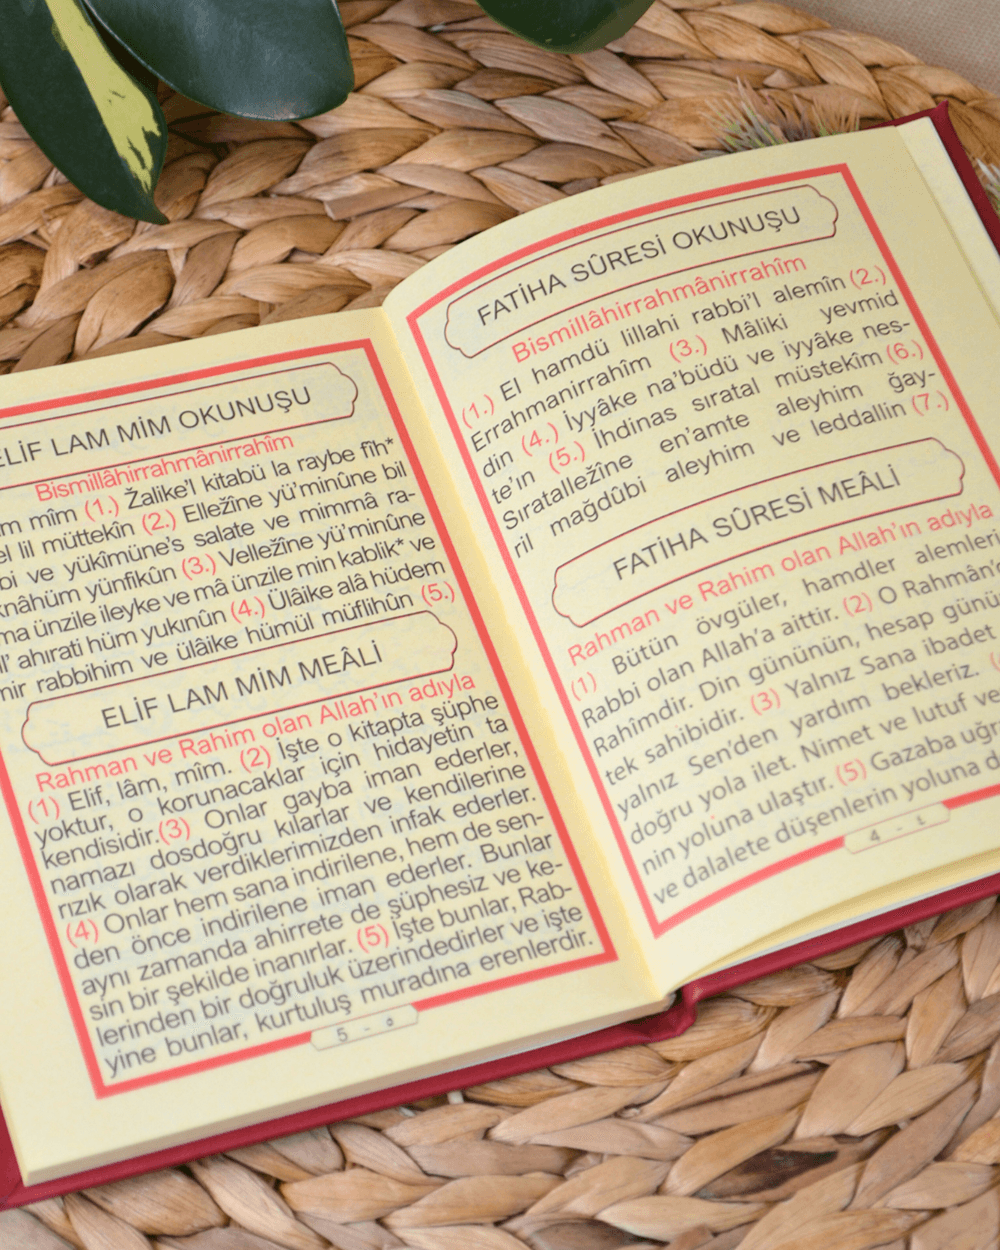 ELİF LAM MİM OKUNUŞU
Bismillâhirrahmânirrahîm
mîm (1.) Žalike'l kitabü la raybe fîh*
lil müttekîn (2.) Elležîne yü'minûne bil
ve yükîmüne's salate ve mimmâ ra-
knâhüm yünfikûn (3.) Velležîne yü'minûne
ma ünzile ileyke ve mâ ünzile min kablik* ve
ahırati hüm yukınûn (4.) Ülâike alâ hüdem
rabbihim ve ülâike hümül müflihûn (5.)
ELİF LAM MİM MEÂLİ
Rahman ve Rahim olan Allah'ın adıyla
(1) Elif, lâm, mîm. (2) İşte o kitapta şüphe
yoktur, o korunacaklar için hidayetin ta
kendisidir.(3) Onlar gayba iman ederler,
namazı dosdoğru kılarlar ve kendilerine
rızık olarak verdiklerimizden infak ederler.
(4) Onlar hem sana indirilene, hem de sen-
den önce indirilene iman ederler. Bunlar
aynı zamanda ahirrete de şüphesiz ve ke-
sin bir şekilde inanırlar. (5) İşte bunlar, Rab-
lerinden bir doğruluk üzerindedirler ve işte
yine bunlar, kurtuluş muradına erenlerdir.
5 - ٥
FATİHA SÛRESİ OKUNUŞU
Bismillâhirrahmânirrahîm
(1.) El hamdü lillahi rabbi'l alemîn (2.)
Errahmanirrahîm (3.) Mâliki yevmid
din (4.) İyyâke na'büdü ve iyyâke nes-
te'ın (5.) İhdinas sıratal müstekîm (6.)
Sıratalležîne en'amte aleyhim ğay-
ril mağdûbi aleyhim ve leddallin (7.)
FATİHA SÛRESİ MEÂLİ
Rahman ve Rahim olan Allah'ın adıyla
(1) Bütün övgüler, hamdler alemleri
Rabbi olan Allah'a aittir. (2) O Rahmân'
Rahîmdir. Din gününün, hesap günü
tek sahibidir. (3) Yalnız Sana ibadet
yalnız Sen'den yardım bekleriz.
doğru yola ilet. Nimet ve lutuf ve
nin yoluna ulaştır. (5) Gazaba uğr
ve dalalete düşenlerin yoluna d
4 - ٤